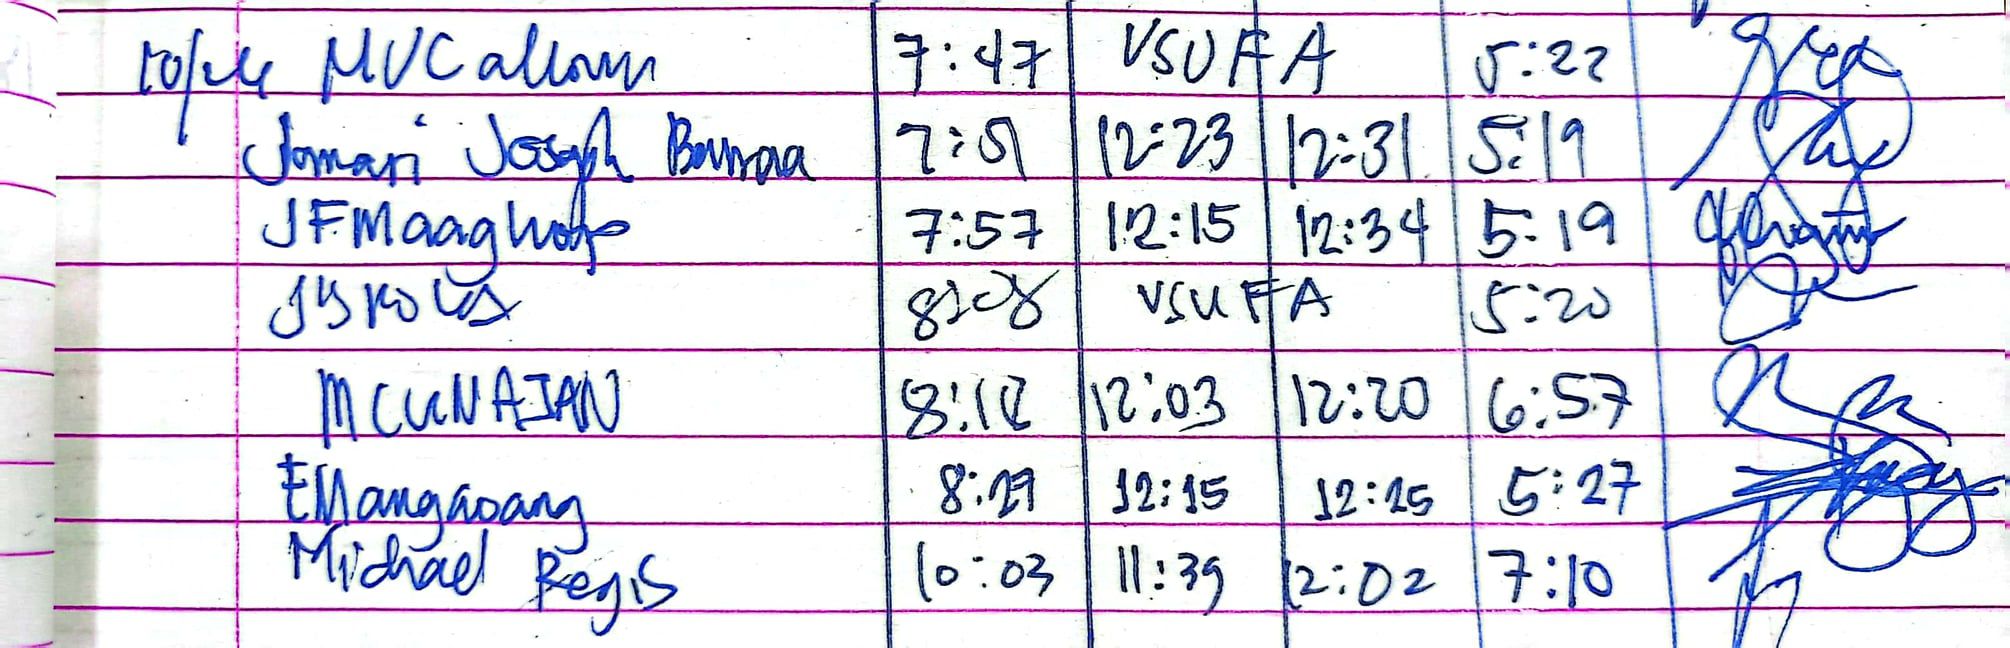 7:47 VSUFA 5:22
Jomari Joseph 12:23 12:31 5:19
JFMaaghop 7:57 12:15 12:34 5:19
8:08 VSUFA 5:20
MCUNAJAN 8:12 12:03 12:20 6:57
EMangaoang 8:29 12:15 12:25 5:27
Michael Regis 10:03 11:39 12:02 7:10